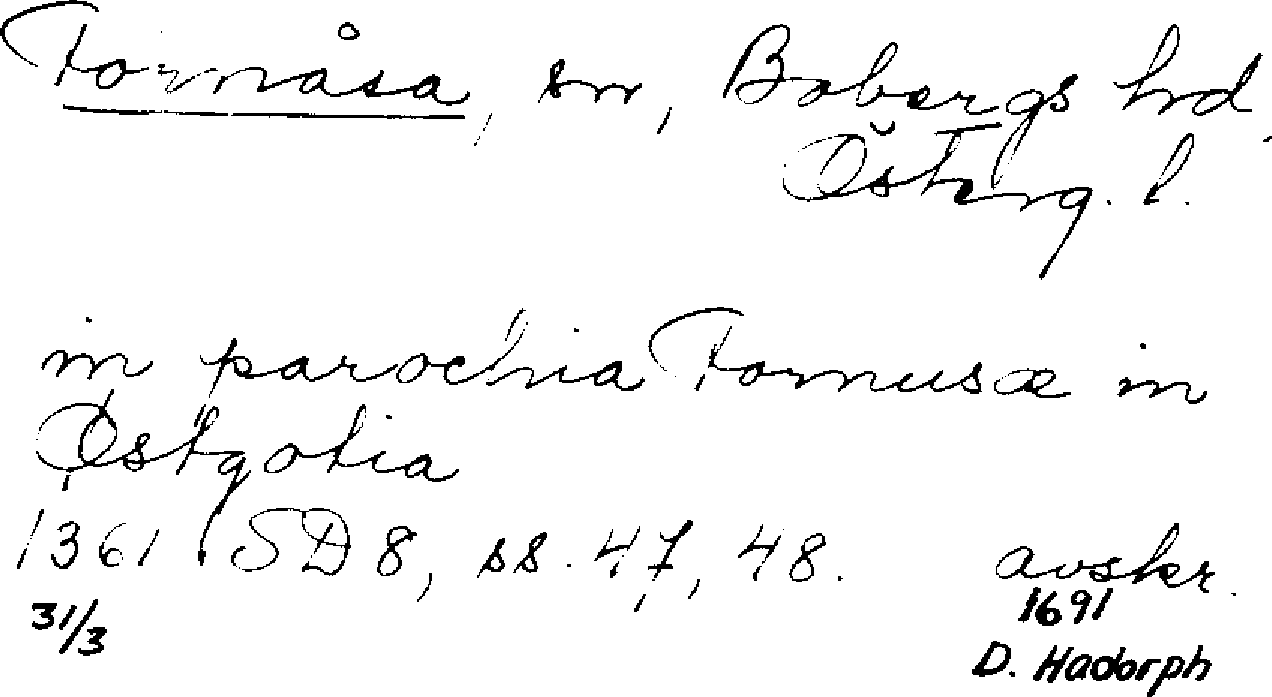 Fornåsa, sn, Bobergs hd,
Österg. l.
in parochia Fornusæ in
Østgotia
1361 SD 8, ss. 47, 48. avskr.
31/3 1691
D. Hadorph